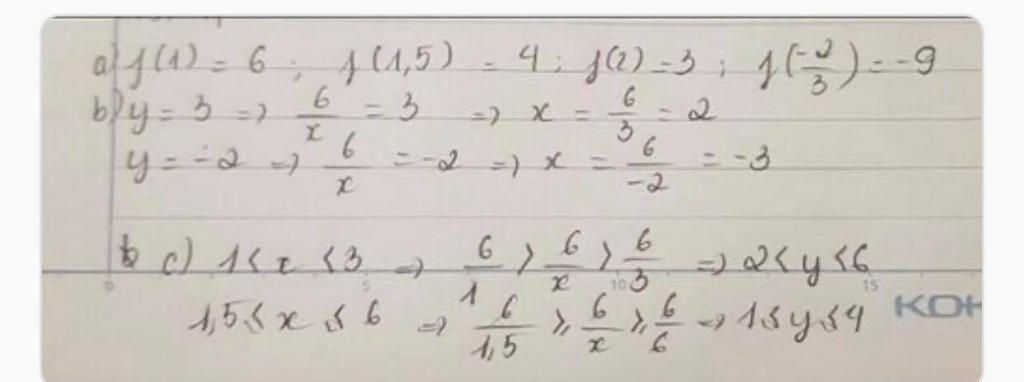 a) f(1) = 6 ; f(1,5) = 4 ; f(2) = 3 ; f(-2/3) = -9
b) y = 3 => 6/x = 3 => x = 6/3 = 2
y = -2 => 6/x = -2 => x = 6/-2 = -3
c) 1 < x < 3 => 6/1 > 6/x > 6/3 => 2 < y < 6
0 5 10 15
1,5 ≤ x ≤ 6 => 6/1,5 ≥ 6/x ≥ 6/6 => 1 ≤ y ≤ 4